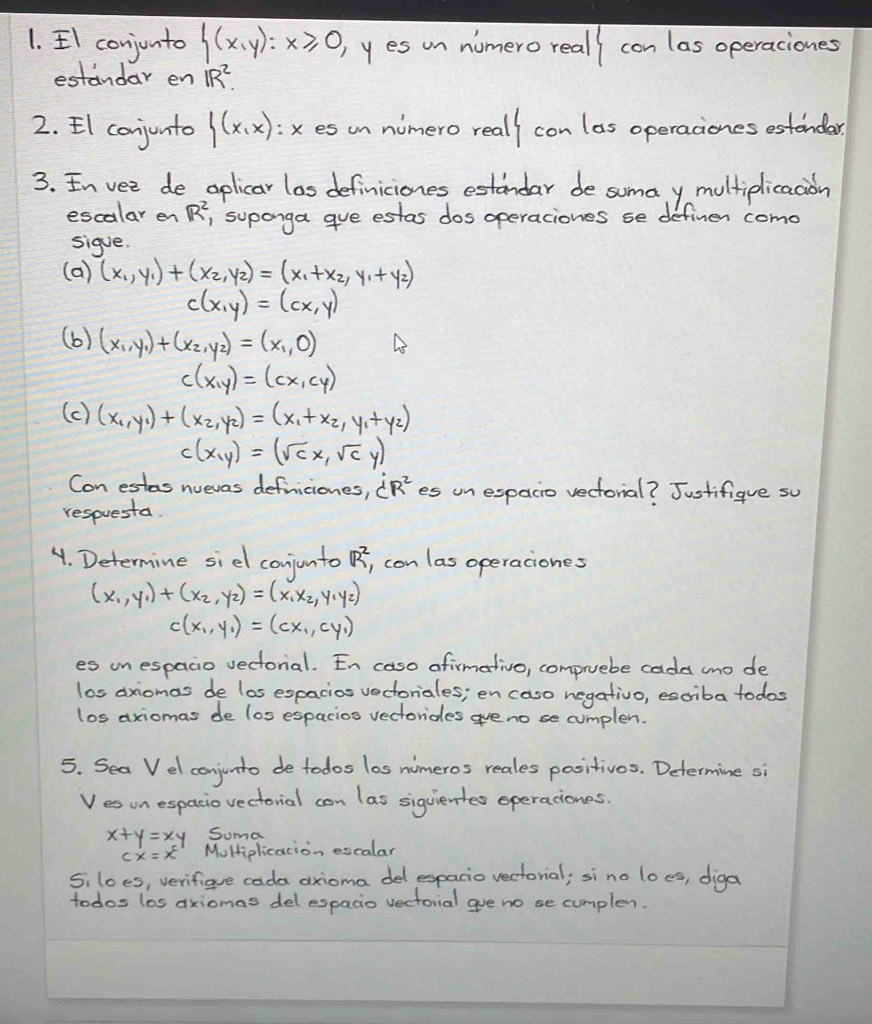 1. El conjunto {(x,y): x⩾0, y es un número real} con las operaciones
estándar en ℝ².
2. El conjunto {(x,x): x es un número real} con las operaciones estándar.
3. En vez de aplicar las definiciones estándar de suma y multiplicación
escalar en ℝ², suponga que estas dos operaciones se definen como
sigue.
(a) (x₁,y₁)+(x₂,y₂) = (x₁+x₂, y₁+y₂)
c(x,y) = (cx,y)
(b) (x₁,y₁)+(x₂,y₂) = (x₁,0)
c(x,y) = (cx,cy)
(c) (x₁,y₁)+(x₂,y₂) = (x₁+x₂, y₁+y₂)
c(x,y) = (√c x, √c y)
Con estas nuevas definiciones, ¿ℝ² es un espacio vectorial? Justifique su
respuesta.
4. Determine si el conjunto ℝ², con las operaciones
(x₁,y₁)+(x₂,y₂) = (x₁x₂, y₁y₂)
c(x₁,y₁) = (cx₁,cy₁)
es un espacio vectorial. En caso afirmativo, compruebe cada uno de
los axiomas de los espacios vectoriales; en caso negativo, escriba todos
los axiomas de los espacios vectoriales que no se cumplen.
5. Sea V el conjunto de todos los números reales positivos. Determine si
V es un espacio vectorial con las siguientes operaciones.
x+y=xy Suma
cx=xᶜ Multiplicación escalar
Si lo es, verifique cada axioma del espacio vectorial; si no lo es, diga
todos los axiomas del espacio vectorial que no se cumplen.